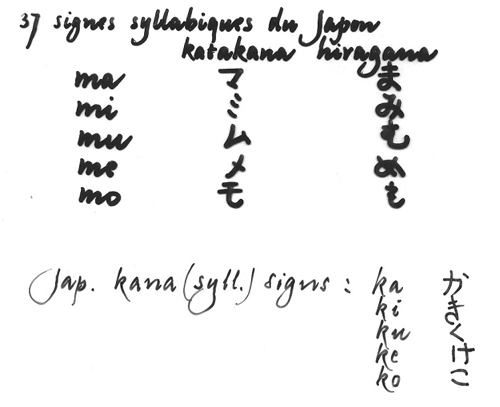 37 signes syllabiques du Japon
katakana hiragana
ma マ ま
mi ミ み
mu ム む
me メ め
mo モ も
Jap. kana (syll.) signs : ka か
ki き
ku く
ke け
ko こ